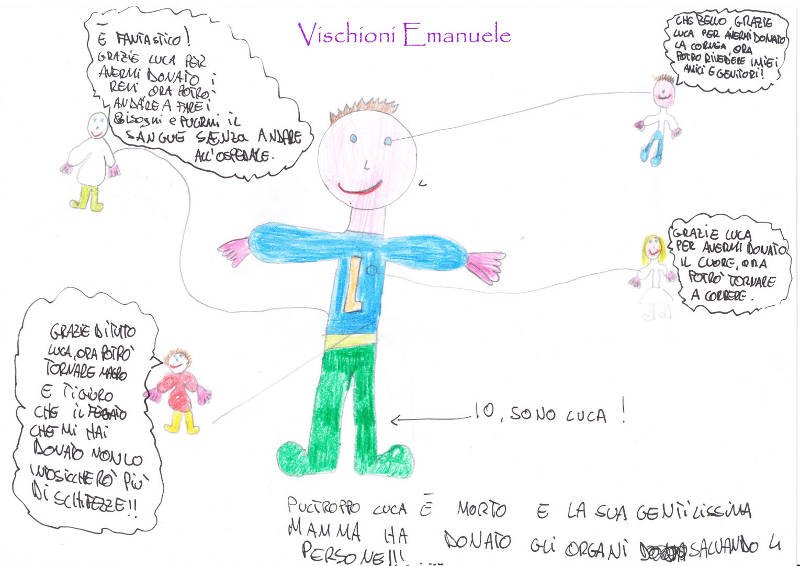 Vischioni Emanuele
È FANTASTICO!
GRAZIE LUCA PER
AVERMI DONATO I
RENI ORA POTRÒ
ANDARE A FARE I
BISOGNI e PULIRMI IL
SANGUE SENZA ANDARE
ALL'OSPEDALE.
CHE BELLO, GRAZIE
LUCA PER AVERMI DONATO
LA CORNEA, ORA
POTRÒ RIVEDERE I MIEI
AMICI E GENITORI!
GRAZIE LUCA
PER AVERMI DONATO
IL CUORE, ORA
POTRÒ TORNARE
A CORRERE.
L
GRAZIE DI TUTTO
LUCA, ORA POTRÒ
TORNARE MAGRO
E TI GIURO
CHE IL FEGATO
CHE MI HAI
DONATO NON LO
INTOSSICHERÒ PIÙ
DI SCHIFEZZE!!
IO, SONO LUCA !
PULTROPPO LUCA È MORTO E LA SUA GENTILISSIMA
MAMMA HA DONATO GLI ORGANI SALVANDO 4
PERSONE!!!.....